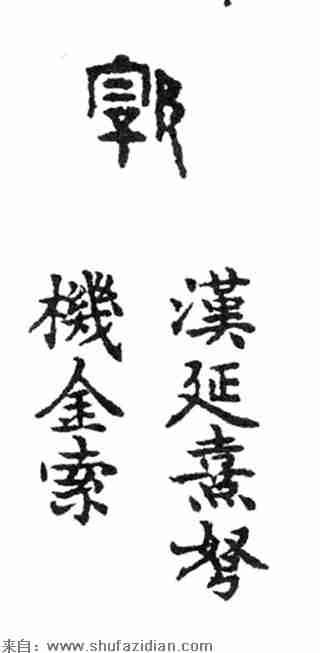 郭
漢延熹弩
機金索
来自：www.shufazidian.com